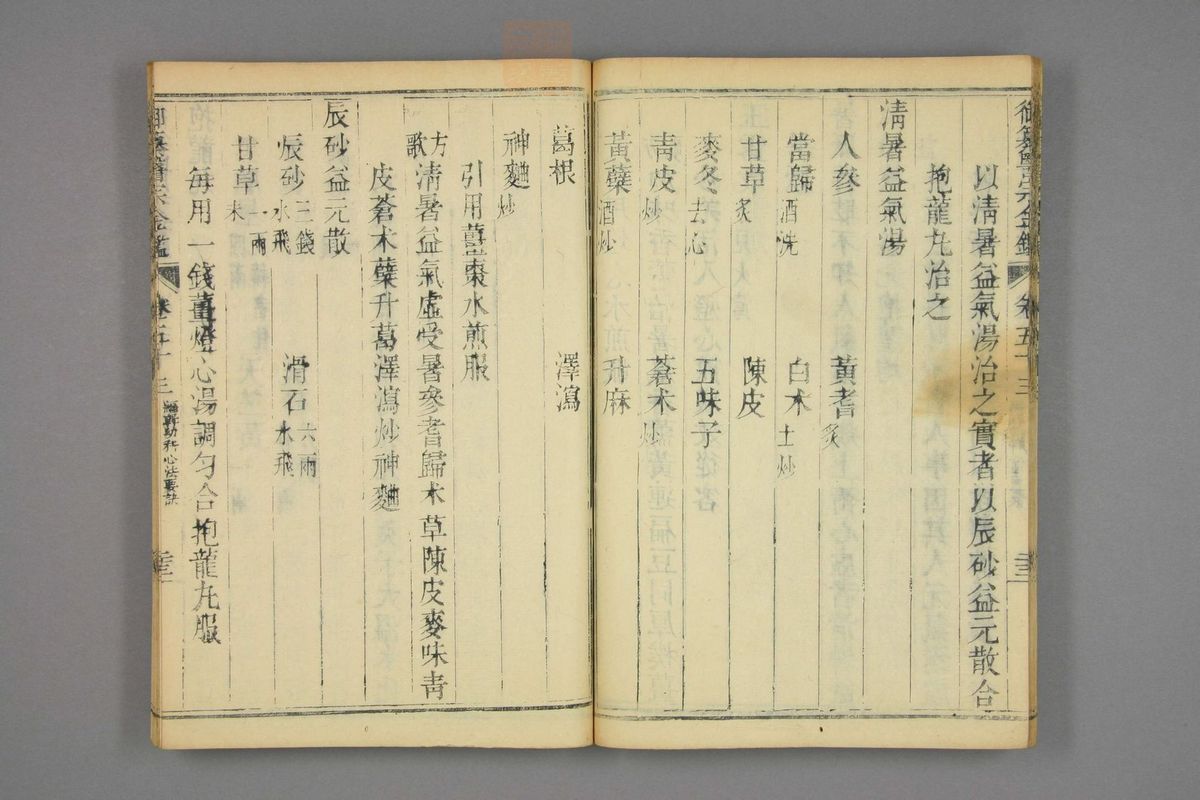 御纂醫宗金鑑 卷五十三
以清暑益氣湯治之實者以辰砂益元散合
抱龍丸治之
清暑益氣湯
人參 黃耆炙
當歸酒洗 白术土炒
甘草炙 陳皮
麥冬去心 五味子
青皮炒 蒼术炒
黃蘗酒炒 升麻
葛根 澤瀉
神麯炒
引用薑棗水煎服
方歌 清暑益氣虛受暑參耆歸术草陳皮麥味青
皮蒼术蘗升葛澤瀉炒神麯
辰砂益元散
辰砂三錢水飛 滑石六兩水飛
甘草一兩末
每用一錢薑燈心湯調勻合抱龍丸服
御纂醫宗金鑑 卷五十三 編輯幼科心法要訣